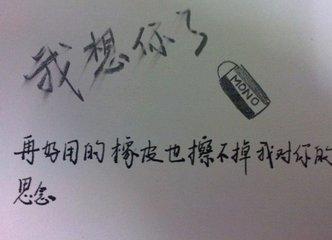 我想你了
MONO
再好用的橡皮也擦不掉我对你的
思念